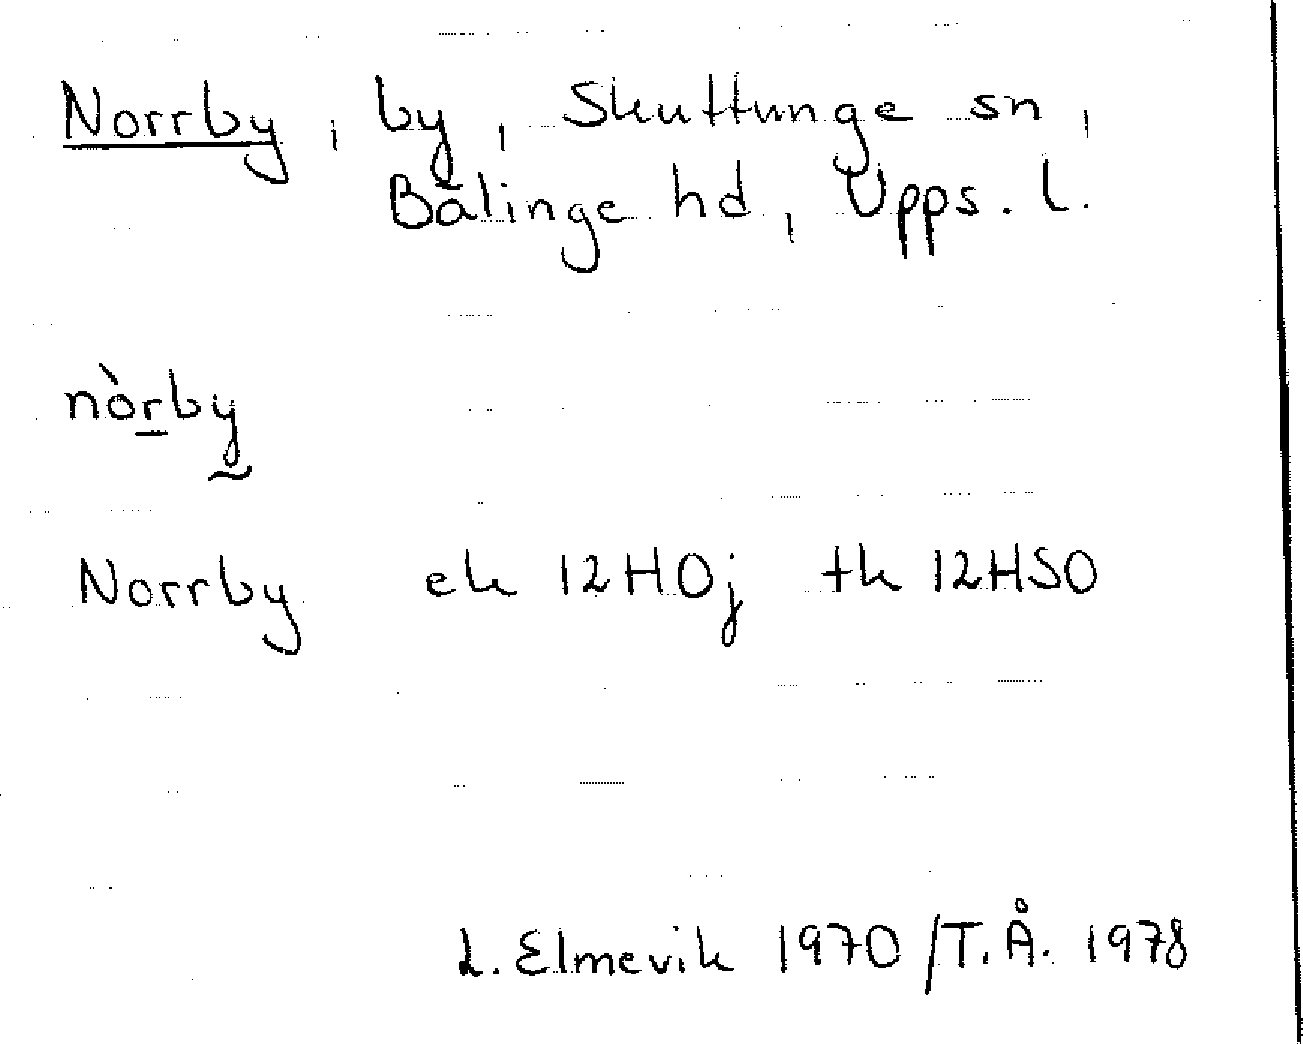 Norrby, by, Skuttunge sn,
Bälinge hd, Upps. l.
nòrby
Norrby ek 12H0j tk 12HSO
L. Elmevik 1970 /T.Å. 1978